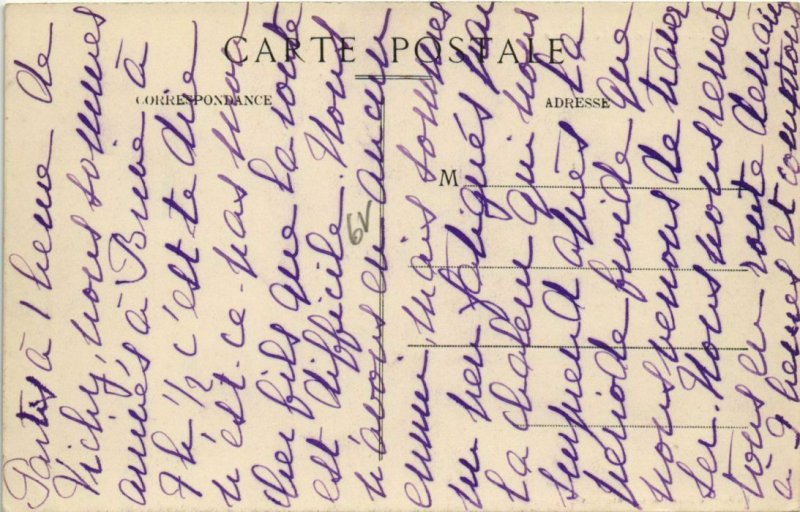 CARTE POSTALE
CORRESPONDANCE
ADRESSE
M
61
Partis à 1 heure de
Vichy, nous sommes
arrivés à Brive à
7h 1/2 c'est te dire
n'est-ce-pas mon
cher fils que la route
est difficile. Nous
n'avons eu aucun
ennui, mais sommes
un peu fatigués par
la chaleur qui nous
surprend après la
période froide que
nous venons de traver
ser. Nous nous remet
tons en route demain
à 9 heures et comptons